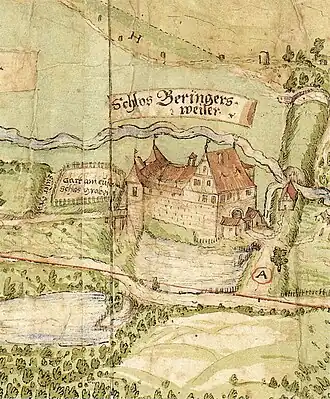 H
Schlos Beringers-
weiler.
Gart am
schlos grabe
A